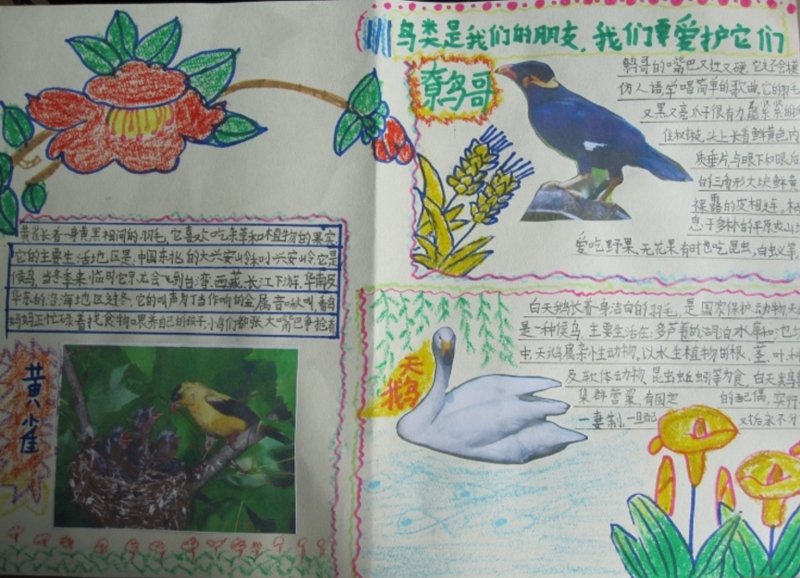 鸟类是我们的朋友，我们要爱护它们
鹩哥
鹩哥的嘴巴又红又硬，它还会模
仿人语，学唱简单的歌曲，它的羽毛
又黑又亮，爪子很有力，能紧紧的
住树枝，头上长着鲜黄色肉
质垂片，与眼下和眼后
的三角形大块鲜黄
裸露的皮相连，
息于多林的平原或山
爱吃野果，无花果，有时也吃昆虫，白蚁等，
黄雀长着一身黄黑相间的羽毛，它喜欢吃杂草和植物的果实，
它的主要生活地区是，中国东北的大兴安岭和小兴安岭，它是
候鸟，当冬季来临时它京上会飞到台湾，西藏，长江下游，华南及
华东的沿海地区过冬，它的叫声为丁当作响的金属音啾叫，看鸟
妈妈正忙碌着找食物喂养自己的孩子，小鸟们都张大嘴巴争抢着
黄雀
天鹅
白天鹅长着一身洁白的羽毛，是国家保护动物，
是一种候鸟，主要生活在，多芦苇的湖泊水库和池
中，天鹅属杂食生动物，以水生植物的根，茎，叶
及软体动物，昆虫蚯蚓等为食，白天鹅
集群营巢，有固定的配偶，实行
一妻制，一旦配 对后永不分